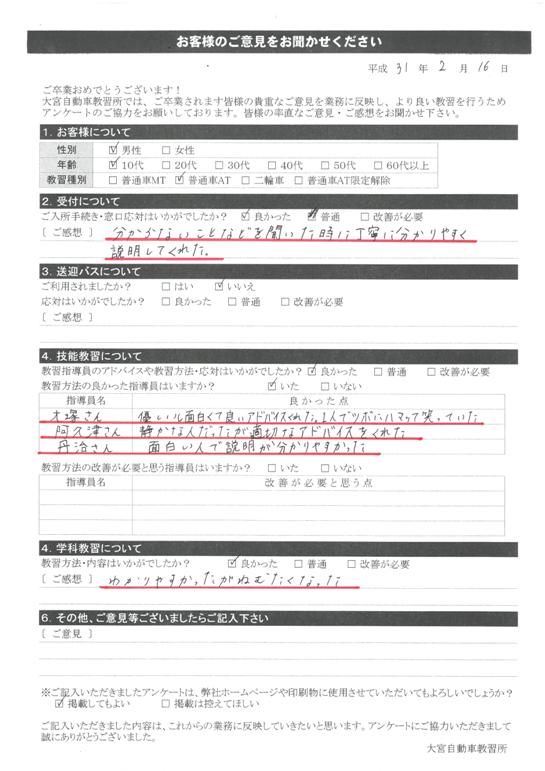 お客様のご意見をお聞かせください
平成 31 年 2 月 16 日
ご卒業おめでとうございます！
大宮自動車教習所では、ご卒業されます皆様の貴重なご意見を業務に反映し、より良い教習を行うため
アンケートのご協力をお願いしております。皆様の率直なご意見・ご感想をお聞かせ下さい。
1. お客様について
性別 ☑男性 □女性
年齢 ☑10代 □20代 □30代 □40代 □50代 □60代以上
教習種別 □普通車MT ☑普通車AT □二輪車 □普通車AT限定解除
2. 受付について
ご入所手続き・窓口応対はいかがでしたか？ ☑良かった 普通 □改善が必要
[ ご感想 ] 分からないことなどを聞いた時に丁寧に分かりやすく
説明してくれた。
3. 送迎バスについて
ご利用されましたか？ □はい ☑いいえ
応対はいかがでしたか？ □良かった □普通 □改善が必要
[ ご感想 ]
4. 技能教習について
教習指導員のアドバイスや教習方法・応対はいかがでしたか？ ☑良かった □普通 □改善が必要
教習方法の良かった指導員はいますか？ ☑いた □いない
指導員名 良かった点
塚さん 優しいし面白くて良いアドバイスくれた。1人でツボにハマって笑っていた
阿久津さん 静かな人だったが適切なアドバイスをくれた
丹治さん 面白い人で説明が分かりやすかった
教習方法の改善が必要と思う指導員はいますか？ □いた □いない
指導員名 改善が必要と思う点
4. 学科教習について
教習方法・内容はいかがでしたか？ ☑良かった □普通 □改善が必要
[ ご感想 ] わかりやすかったがねむたくなった
6. その他、ご意見等ございましたらご記入下さい
[ ご意見 ]
※ご記入いただきましたアンケートは、弊社ホームページや印刷物に使用させていただいてもよろしいでしょうか？
☑掲載してもよい □掲載は控えてほしい
ご記入いただきました内容は、これからの業務に反映していきたいと思います。アンケートにご協力いただきまして
誠にありがとうございました。
大宮自動車教習所